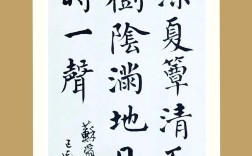 深夏簟清石
樹陰滿地日
時一聲
蘇
王